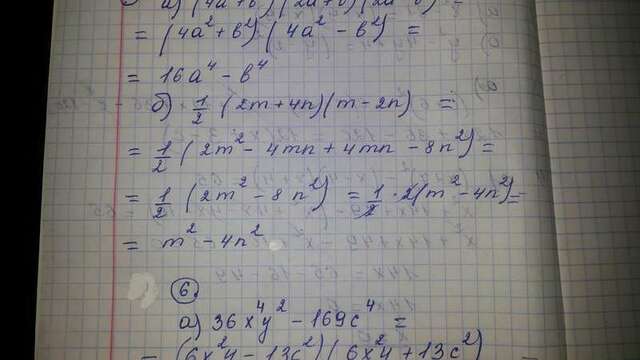 а) (4a² + b²)(2a + b)(2a - b) =
= (4a² + b²)(4a² - b²) =
= 16a⁴ - b⁴
б) 1/2 (2m + 4n)(m - 2n) =
= 1/2 (2m² - 4mn + 4mn - 8n²) =
= 1/2 (2m² - 8n²) = 1/2 · 2(m² - 4n²) =
= m² - 4n²
6.
а) 36x⁴y² - 169c⁴ =
= (6x²y - 13c²)(6x²y + 13c²)